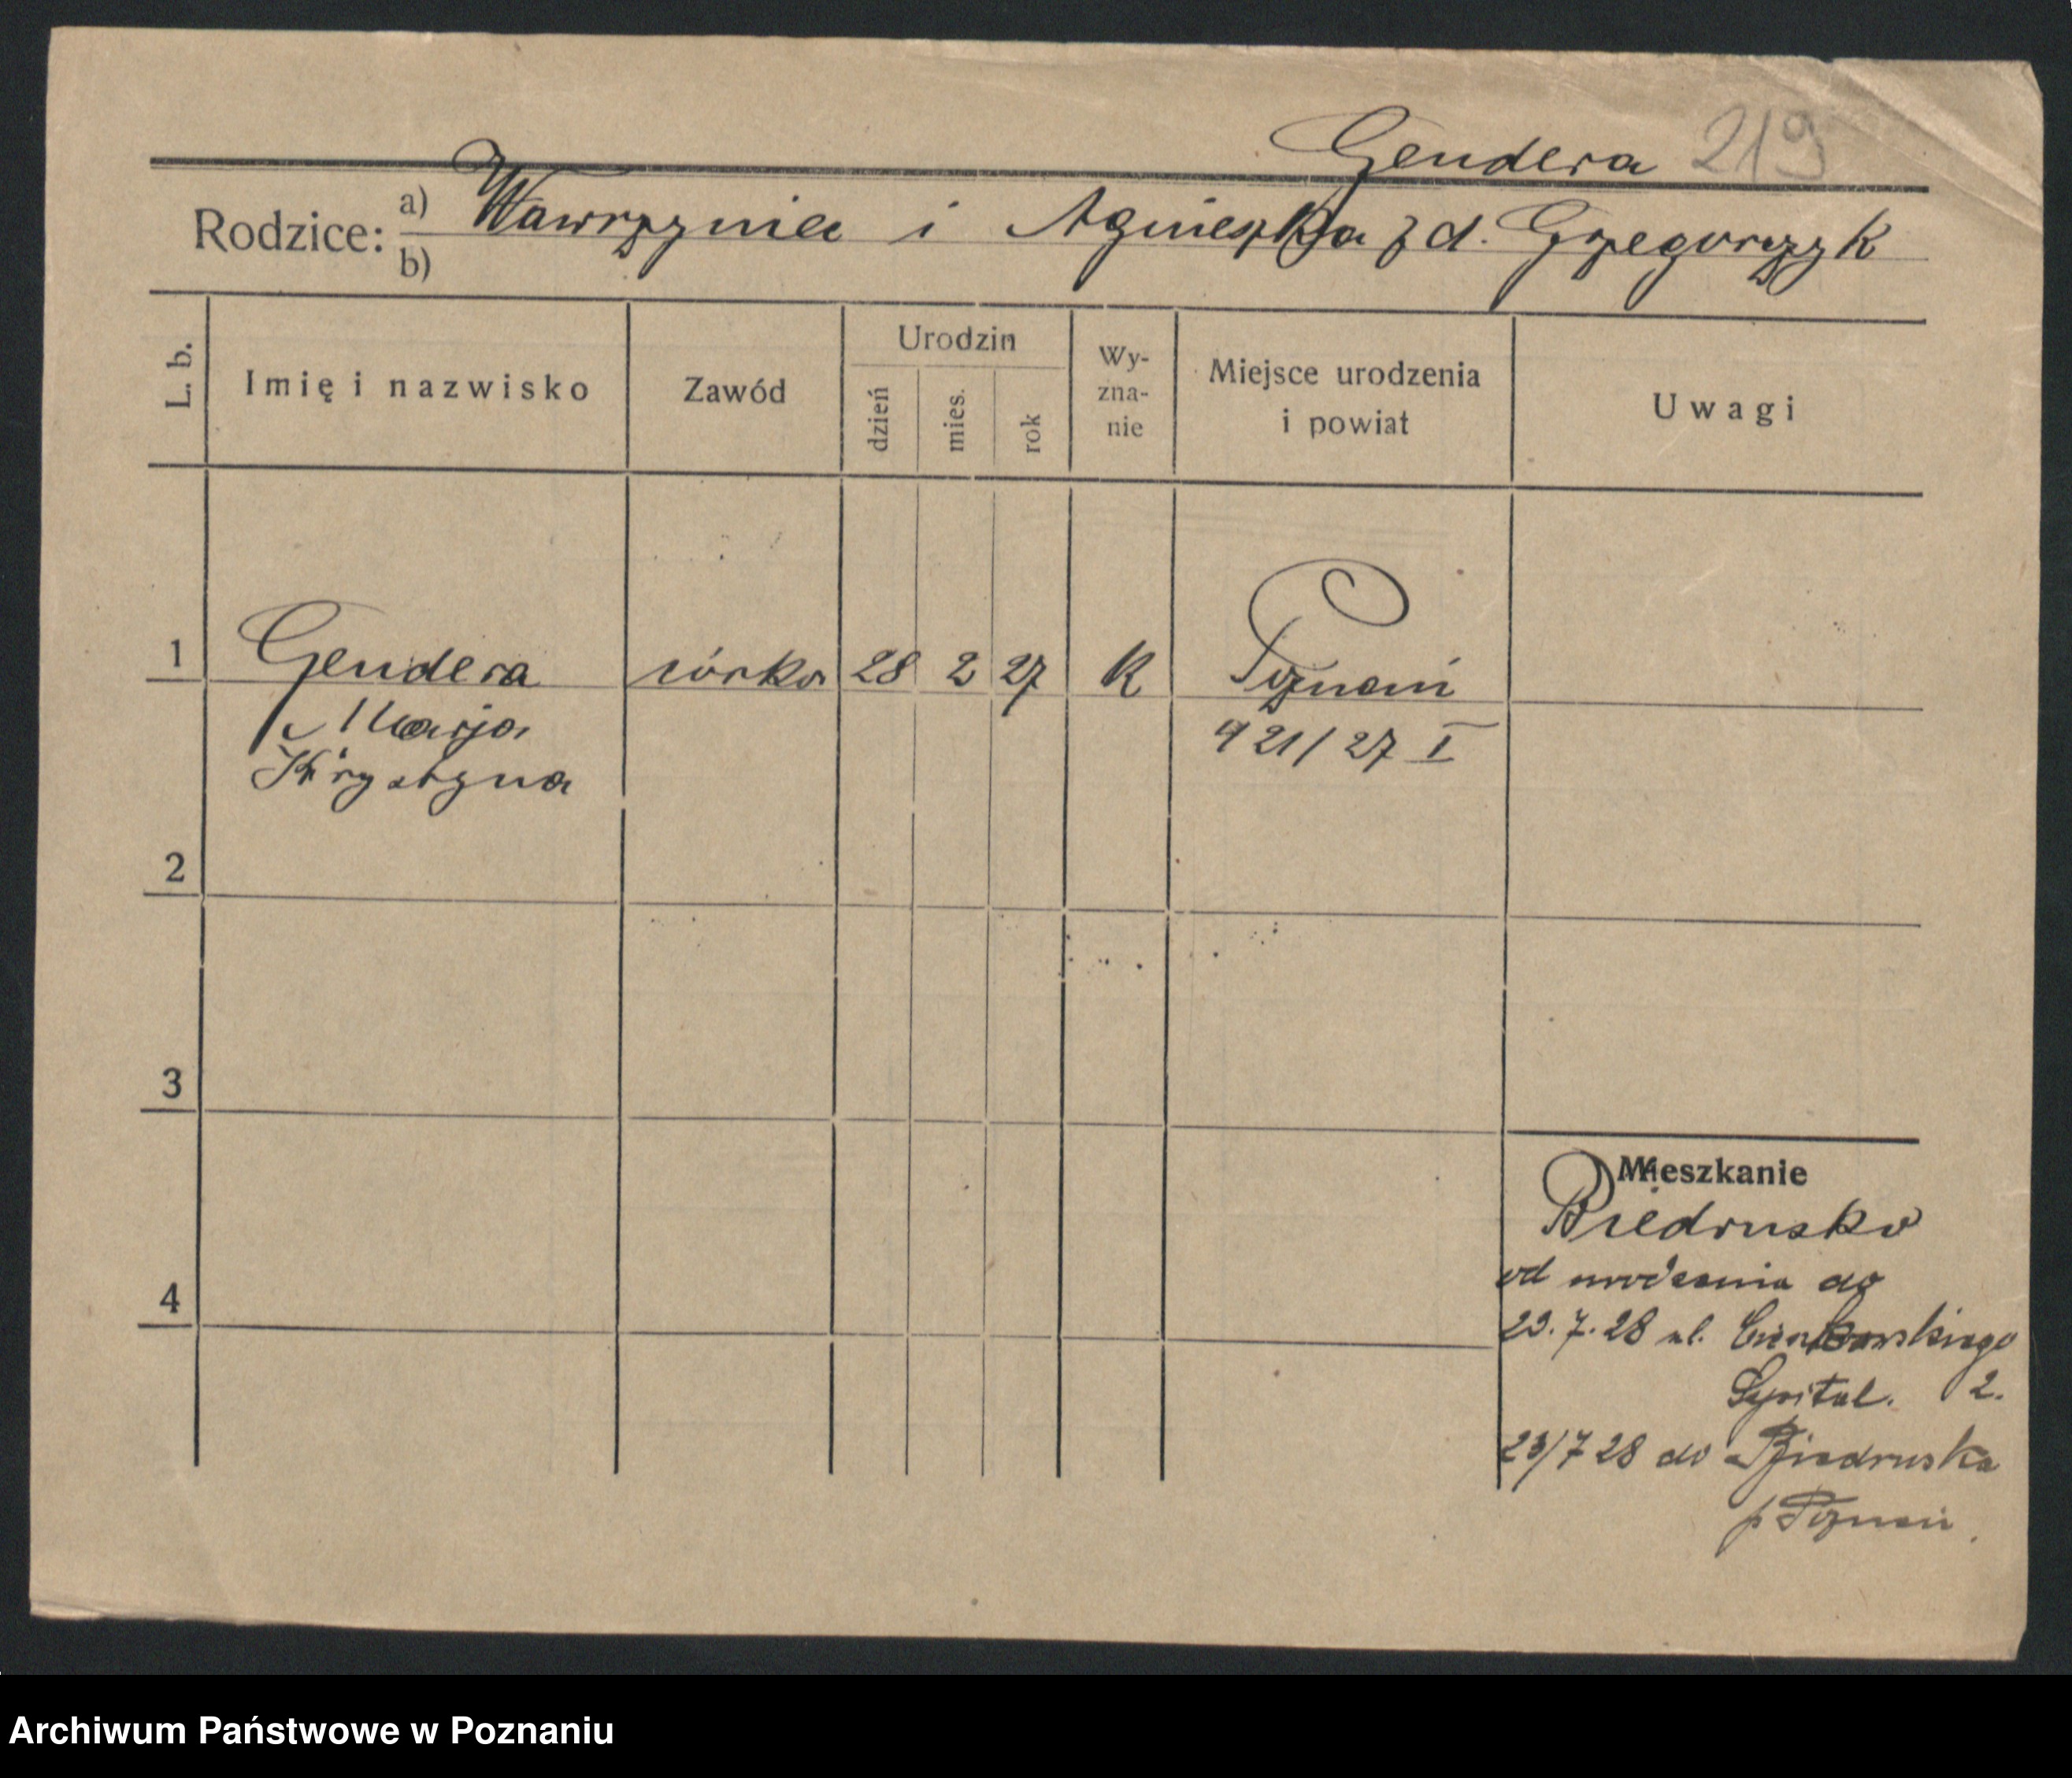 Gendera 219
Rodzice: a) Wawrzyniec i Agnieszka z d. Grzegorczyk
b)
L. b.
Imię i nazwisko
Zawód
Urodzin
dzień
mies.
rok
Wy-
zna-
nie
Miejsce urodzenia
i powiat
Uwagi
1 Gendera córka 28 2 27 K Poznań
Marja 921/27 I
Krystyna
2
3
4
Mieszkanie
Biedrusko
od urodzenia do
7.28 ul.
Szpital. 2.
23/7 28 do Biedruska
p Poznań.
Archiwum Państwowe w Poznaniu